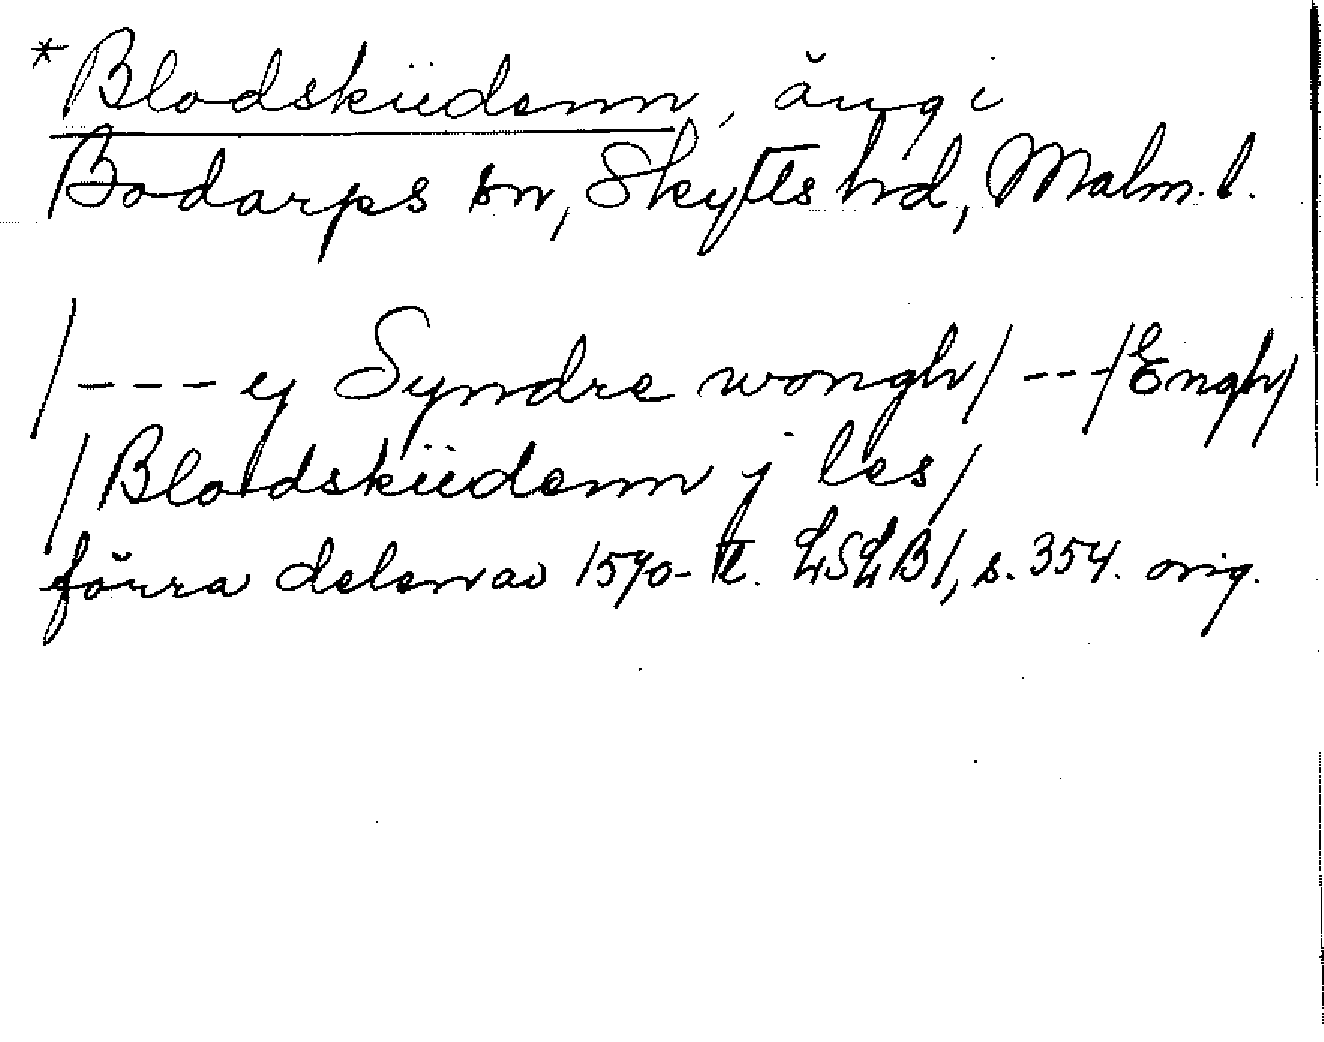 *Blodsküdenn, äng i
Bodarps sn, Skytts hd, Malm. l.
/---ej Syndre wongh/---/Engh/
/Blodsküdenn j les/
förra delen av 1570-t. LSLB1, s. 354. orig.